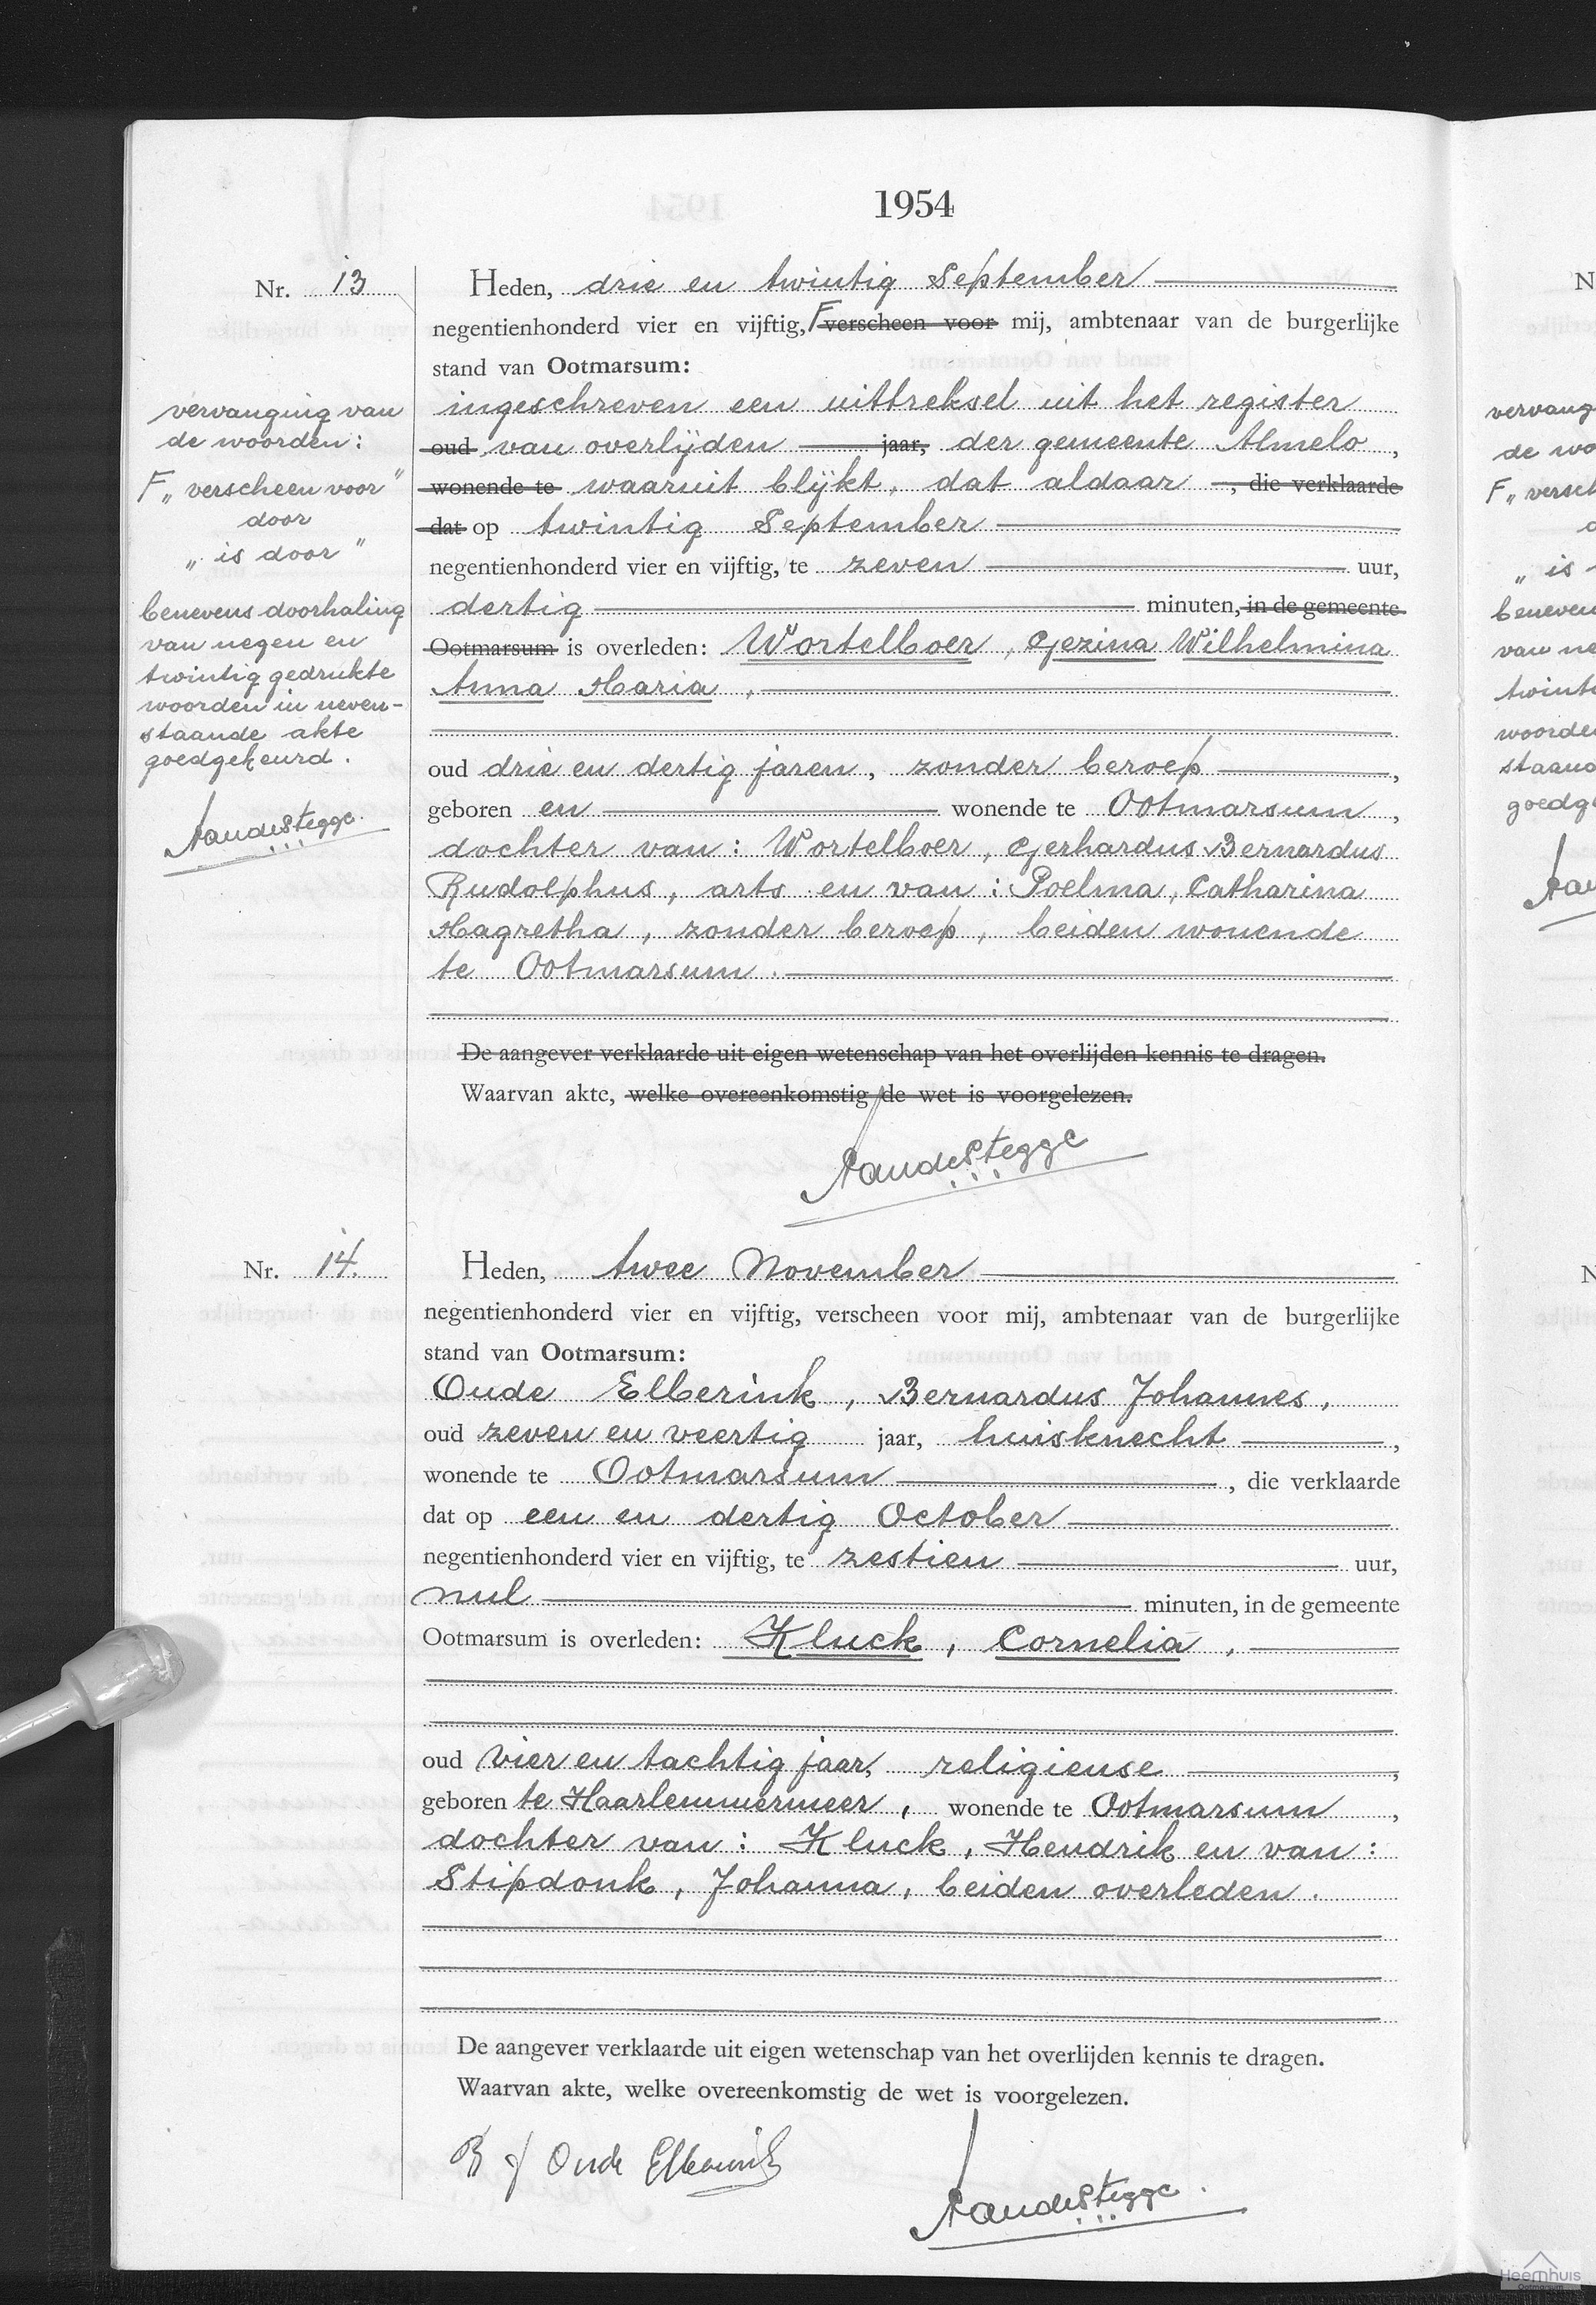 1954
Nr. 13
Heden, drie en twintig September
negentienhonderd vier en vijftig, F verscheen voor mij, ambtenaar van de burgerlijke
stand van Ootmarsum:
ingeschreven een uittreksel uit het register
oud van overlijden jaar, der gemeente Almelo,
wonende te waaruit blijkt, dat aldaar , die verklaarde
dat op twintig September
negentienhonderd vier en vijftig, te zeven uur,
dertig minuten, in de gemeente
Ootmarsum is overleden: Wortelboer, Gezina Wilhelmina
Anna Maria,
oud drie en dertig jaren, zonder beroep,
geboren en wonende te Ootmarsum,
dochter van: Wortelboer, Gerhardus Bernardus
Rudolphus, arts en van: Poelma, Catharina
Magretha, zonder beroep, beiden wonende
te Ootmarsum.
De aangever verklaarde uit eigen wetenschap van het overlijden kennis te dragen.
Waarvan akte, welke overeenkomstig de wet is voorgelezen.
vervanging van
de woorden:
F „verscheen voor"
door
„is door"
benevens doorhaling
van negen en
twintig gedrukte
woorden in neven-
staande akte
goedgekeurd.
Nr. 14.
Heden, twee November
negentienhonderd vier en vijftig, verscheen voor mij, ambtenaar van de burgerlijke
stand van Ootmarsum:
Oude Elberink, Bernardus Johannes,
oud zeven en veertig jaar, huisknecht,
wonende te Ootmarsum, die verklaarde
dat op een en dertig October
negentienhonderd vier en vijftig, te zestien uur,
nul minuten, in de gemeente
Ootmarsum is overleden: Kluck, Cornelia,
oud vier en tachtig jaar, religieuse,
geboren te Haarlemmermeer, wonende te Ootmarsum,
dochter van: Kluck, Hendrik en van:
Stipdonk, Johanna, beiden overleden.
De aangever verklaarde uit eigen wetenschap van het overlijden kennis te dragen.
Waarvan akte, welke overeenkomstig de wet is voorgelezen.
B J Oude Elberink
vervang
de wo
F „versch
„is
beneven
van ne
twint
woorde
staand
goedg
Heemhuis
Ootmarsum